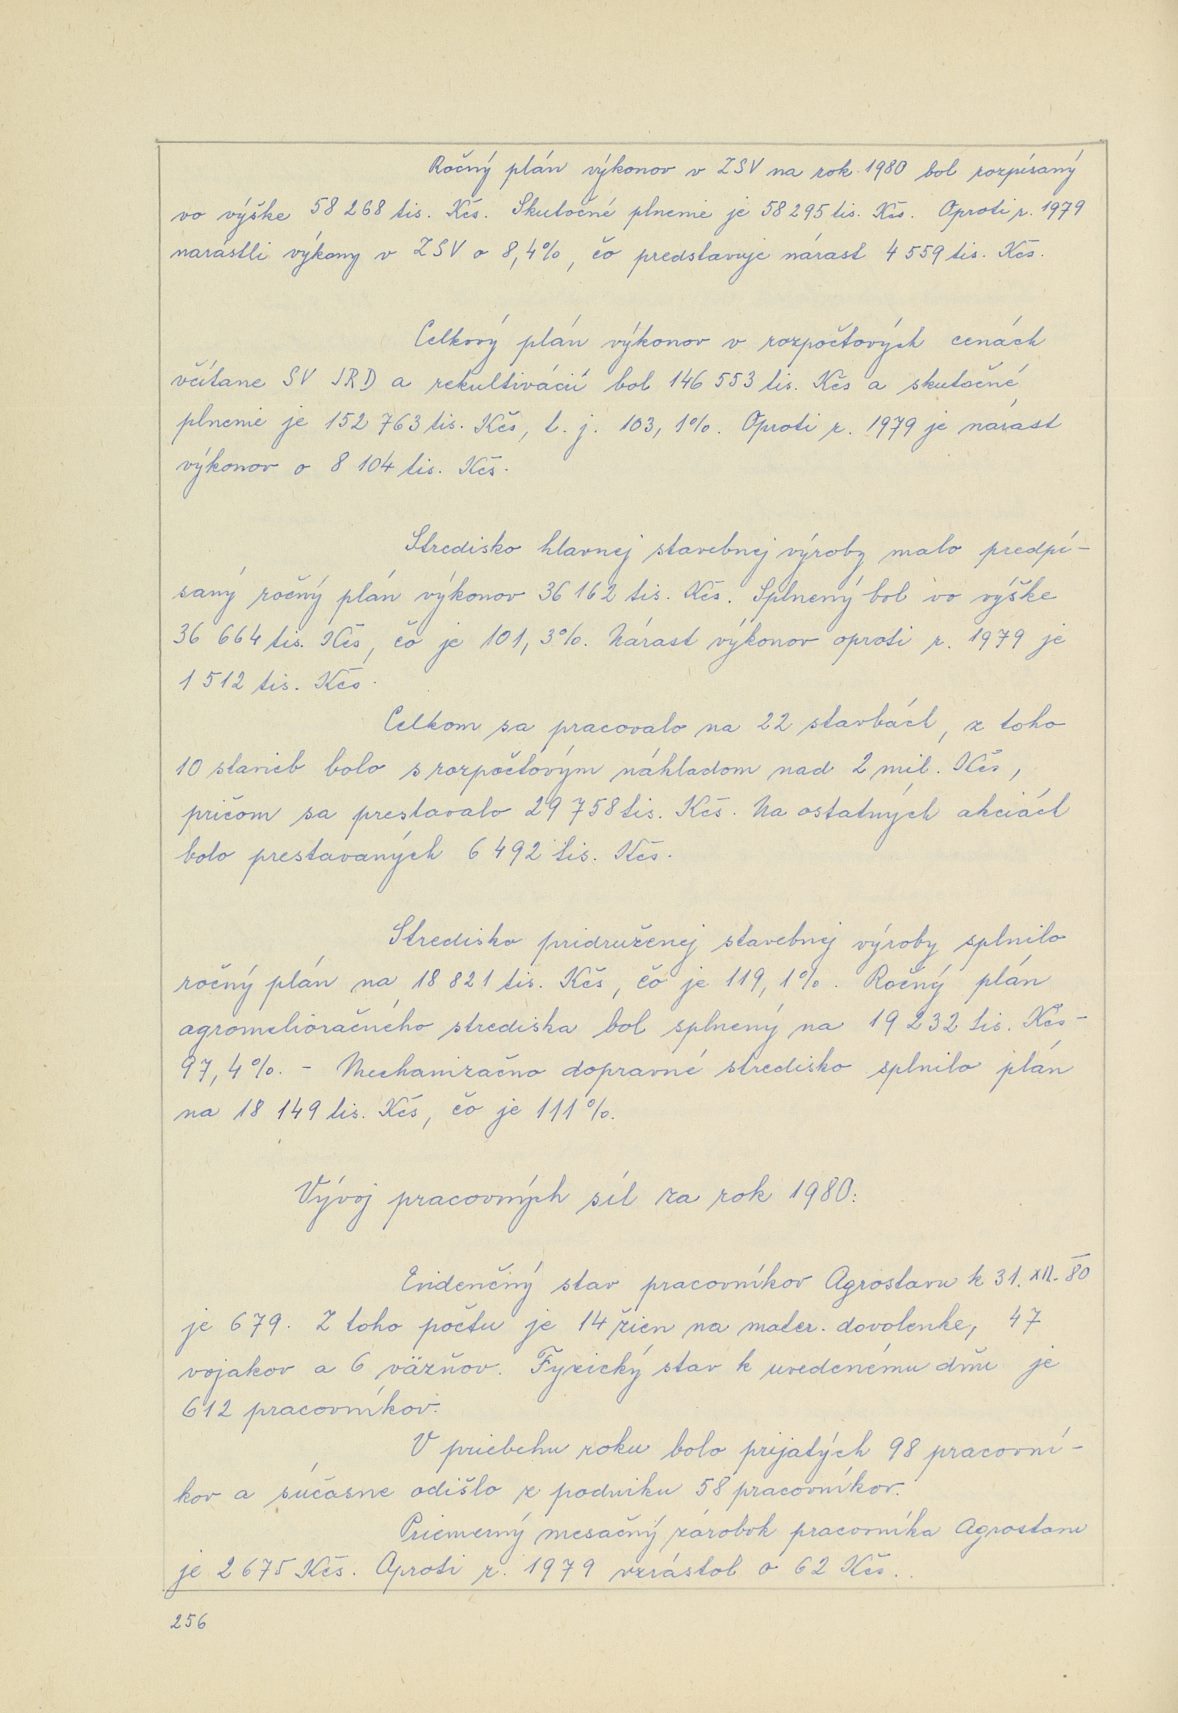 Ročný plán výkonov v ZSV na rok 1980 bol rozpísaný
vo výške 58 268 tis. Kčs. Skutočné plnenie je 58 295 tis. Kčs. Oproti r. 1979
narástli výkony v ZSV o 8,4%, čo predstavuje nárast 4 559 tis. Kčs.
Celkový plán výkonov v rozpočtových cenách
včítane SV JRD a rekultivácií bol 146 553 tis. Kčs a skutočné
plnenie je 152 763 tis. Kčs, t. j. 103,1%. Oproti r. 1979 je nárast
výkonov o 8 104 tis. Kčs.
Stredisko hlavnej stavebnej výroby malo predpí-
saný ročný plán výkonov 36 162 tis. Kčs. Splnený bol vo výške
36 664 tis. Kčs, čo je 101,3%. Nárast výkonov oproti r. 1979 je
1 512 tis. Kčs.
Celkom sa pracovalo na 22 stavbách, z toho
10 stavieb bolo s rozpočtovým nákladom nad 2 mil. Kčs,
pričom sa prestavalo 29 758 tis. Kčs. Na ostatných akciách
bolo prestavaných 6 492 tis. Kčs.
Stredisko pridruženej stavebnej výroby splnilo
ročný plán na 18 821 tis. Kčs, čo je 119,1%. Ročný plán
agromelioračného strediska bol splnený na 19 232 tis. Kčs -
97,4%. - Mechanizačno dopravné stredisko splnilo plán
na 18 149 tis. Kčs, čo je 111%.
Vývoj pracovných síl za rok 1980:
Evidenčný stav pracovníkov Agrostavu k 31. XII. 80
je 679. Z toho počtu je 14 žien na mater. dovolenke, 47
vojakov a 6 väzňov. Fyzický stav k uvedenému dňu je
612 pracovníkov.
V priebehu roku bolo prijatých 98 pracovní-
kov a súčasne odišlo z podniku 58 pracovníkov.
Priemerný mesačný zárobok pracovníka Agrostavu
je 2 675 Kčs. Oproti r. 1979 vzrástol o 62 Kčs..
256